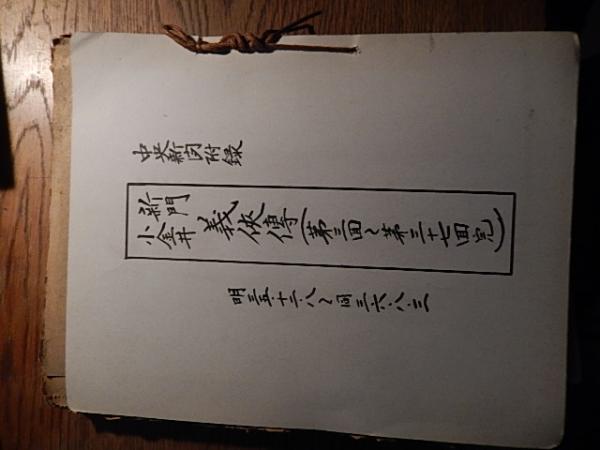 中央新聞附録
新門
小金井
義俠傳(第三回〜第三十七回完)
明三五・十二・八〜同三六・八・三